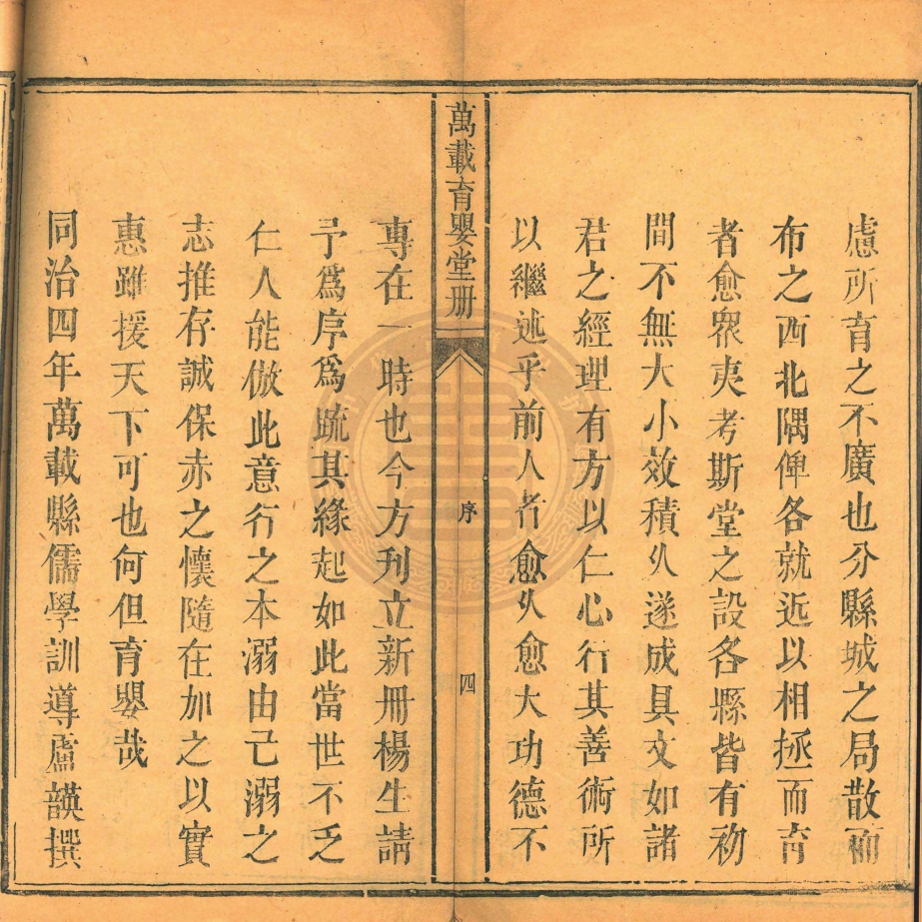 慮所育之不廣也分縣城之局散而
布之西北隅俾各就近以相拯而育
者愈衆夷考斯堂之設各縣皆有初
間不無大小效積久遂成具文如諸
君之經理有方以仁心行其善術所
以繼述乎前人者愈久愈大功德不
萬載育嬰堂册
序
四
專在一時也今方刊立新册楊生請
予爲序爲䟽其緣起如此當世不乏
仁人能倣此意行之本溺由己溺之
志推存誠保赤之懷隨在加之以實
惠雖援天下可也何但育嬰哉
同治四年萬載縣儒學訓導盧韺撰